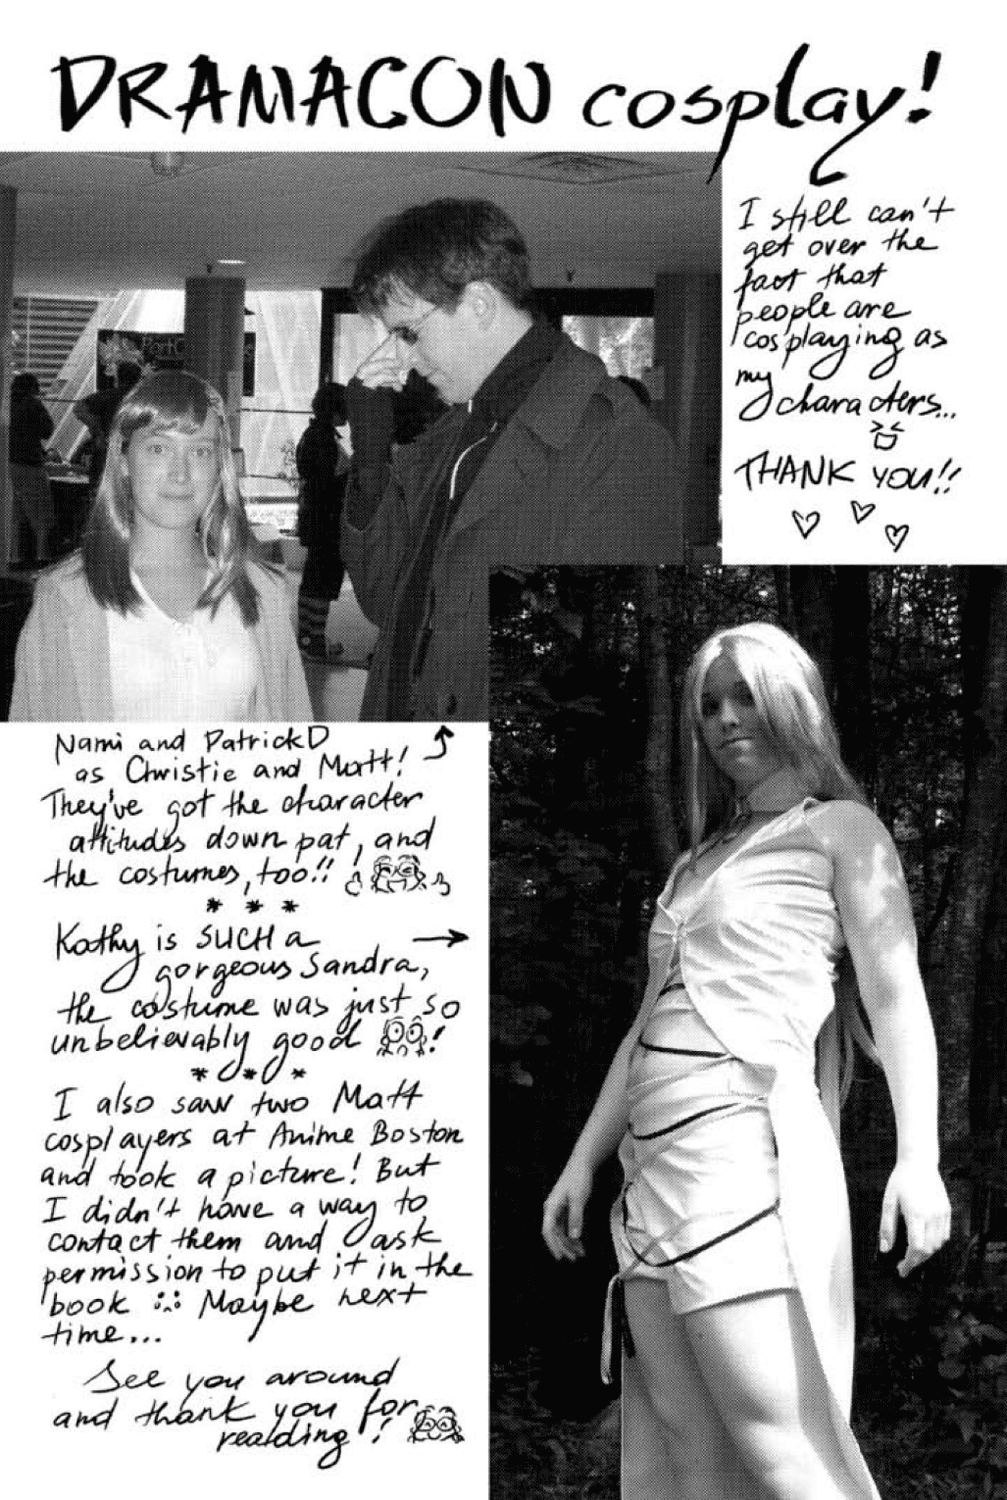 DRAMACON cosplay!
I still can't
get over the
fact that
people are
cosplaying as
my
characters...
THANK YOU!!
Nami and PatrickD
as Christie and Matt!
They've got the character
attitudes down pat, and
the costumes, too!!
* * *
Kathy is SUCH a
gorgeous Sandra,
the costume was just so
unbelievably good !
* * *
I also saw two Matt
cosplayers at Anime Boston
and took a picture! But
I didn't have a way to
contact them and ask
permission to put it in the
book :: Maybe next
time...
See you around
and thank you for
reading!